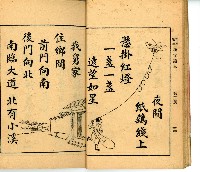 夜間
紙鷂綫上
懸掛紅燈
一盞一盞
遠望如星
我舅家
住鄉間
前門向南
後門向北
南臨大道 北有小溪